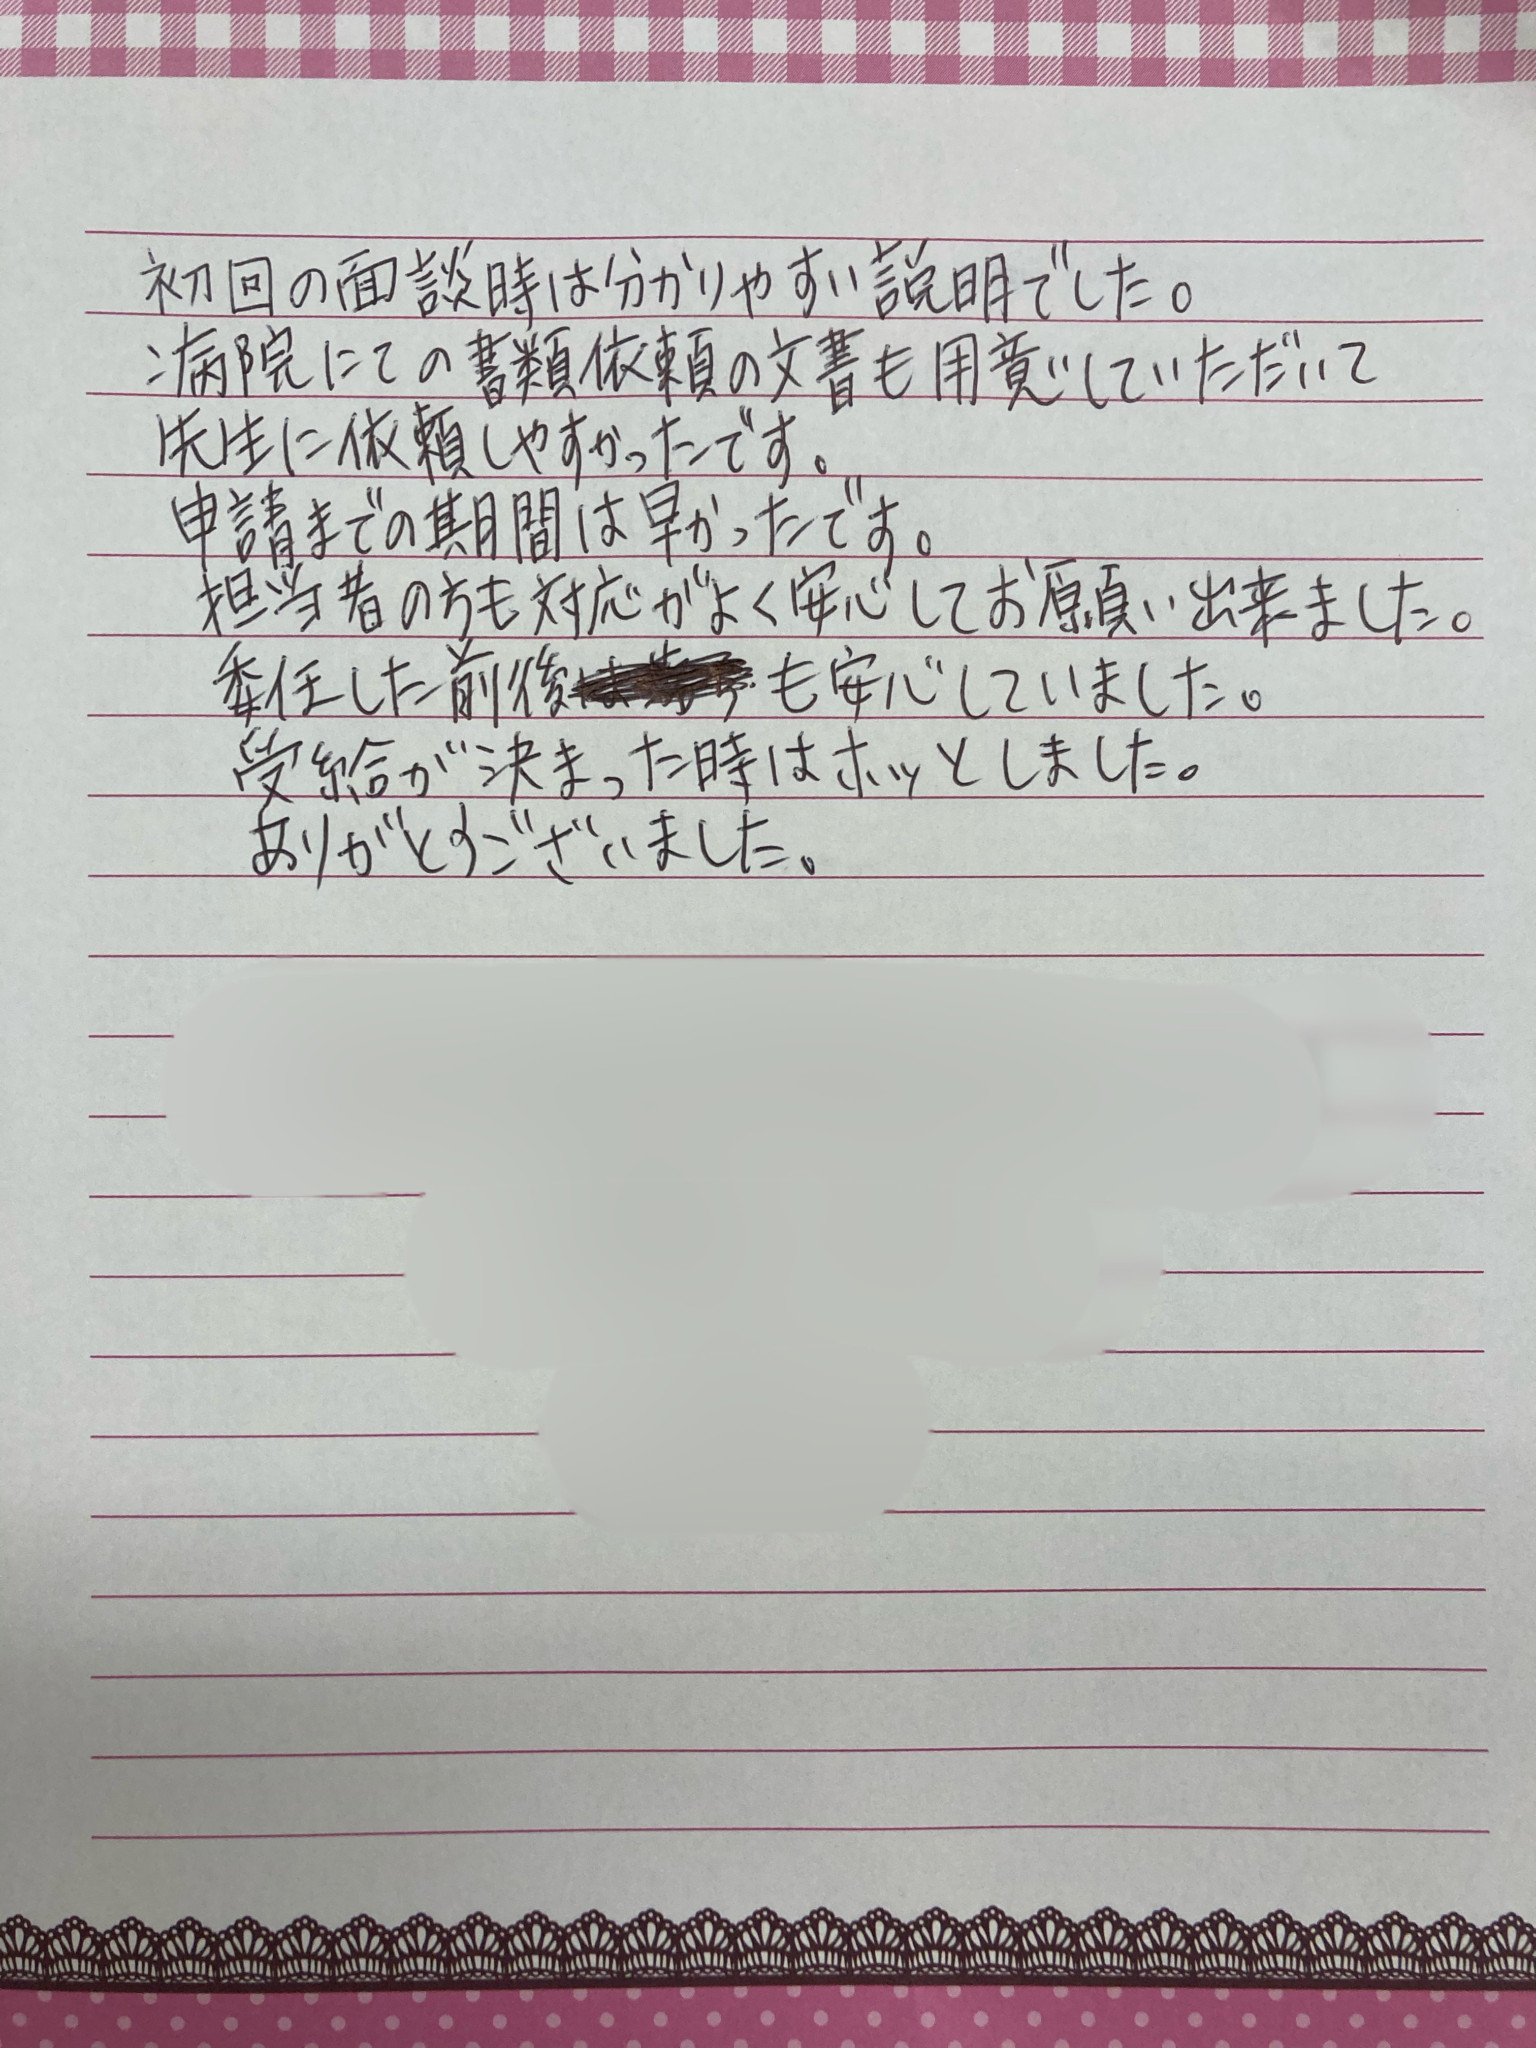 初回の面談時は分かりやすい説明でした。
病院にての書類依頼の文書も用意していただいて
先生に依頼しやすかったです。
申請までの期間は早かったです。
担当者の方も対応がよく安心してお願い出来ました。
委任した前後も安心していました。
受給が決まった時はホッとしました。
ありがとうございました。